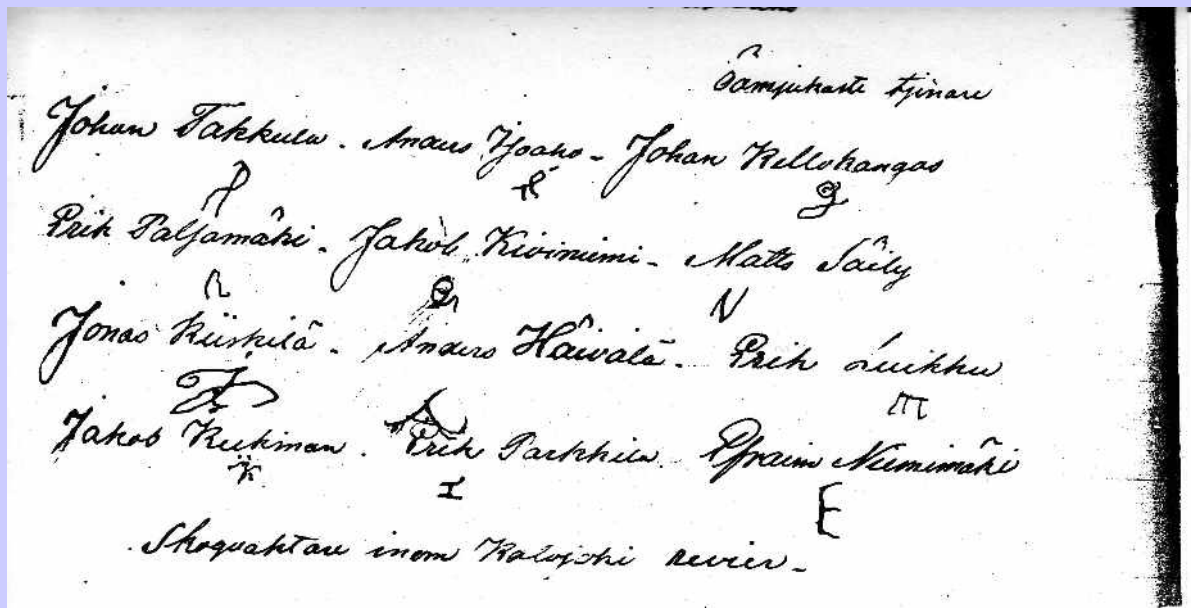 ödmjukaste tjenare
Johan Takkula. Anders Isoaho - Johan Kellokangas
Erik Paljamäki - Jakob Kiviniemi - Matts Säily
N
Jonas Kiiskilä - Anders Häivälä. Erik Luikku
m
Jakob Kukman. Erik Parkkila. Efraim Niemimäki
K I E
Skogvaktare inom Kalajoki revier -